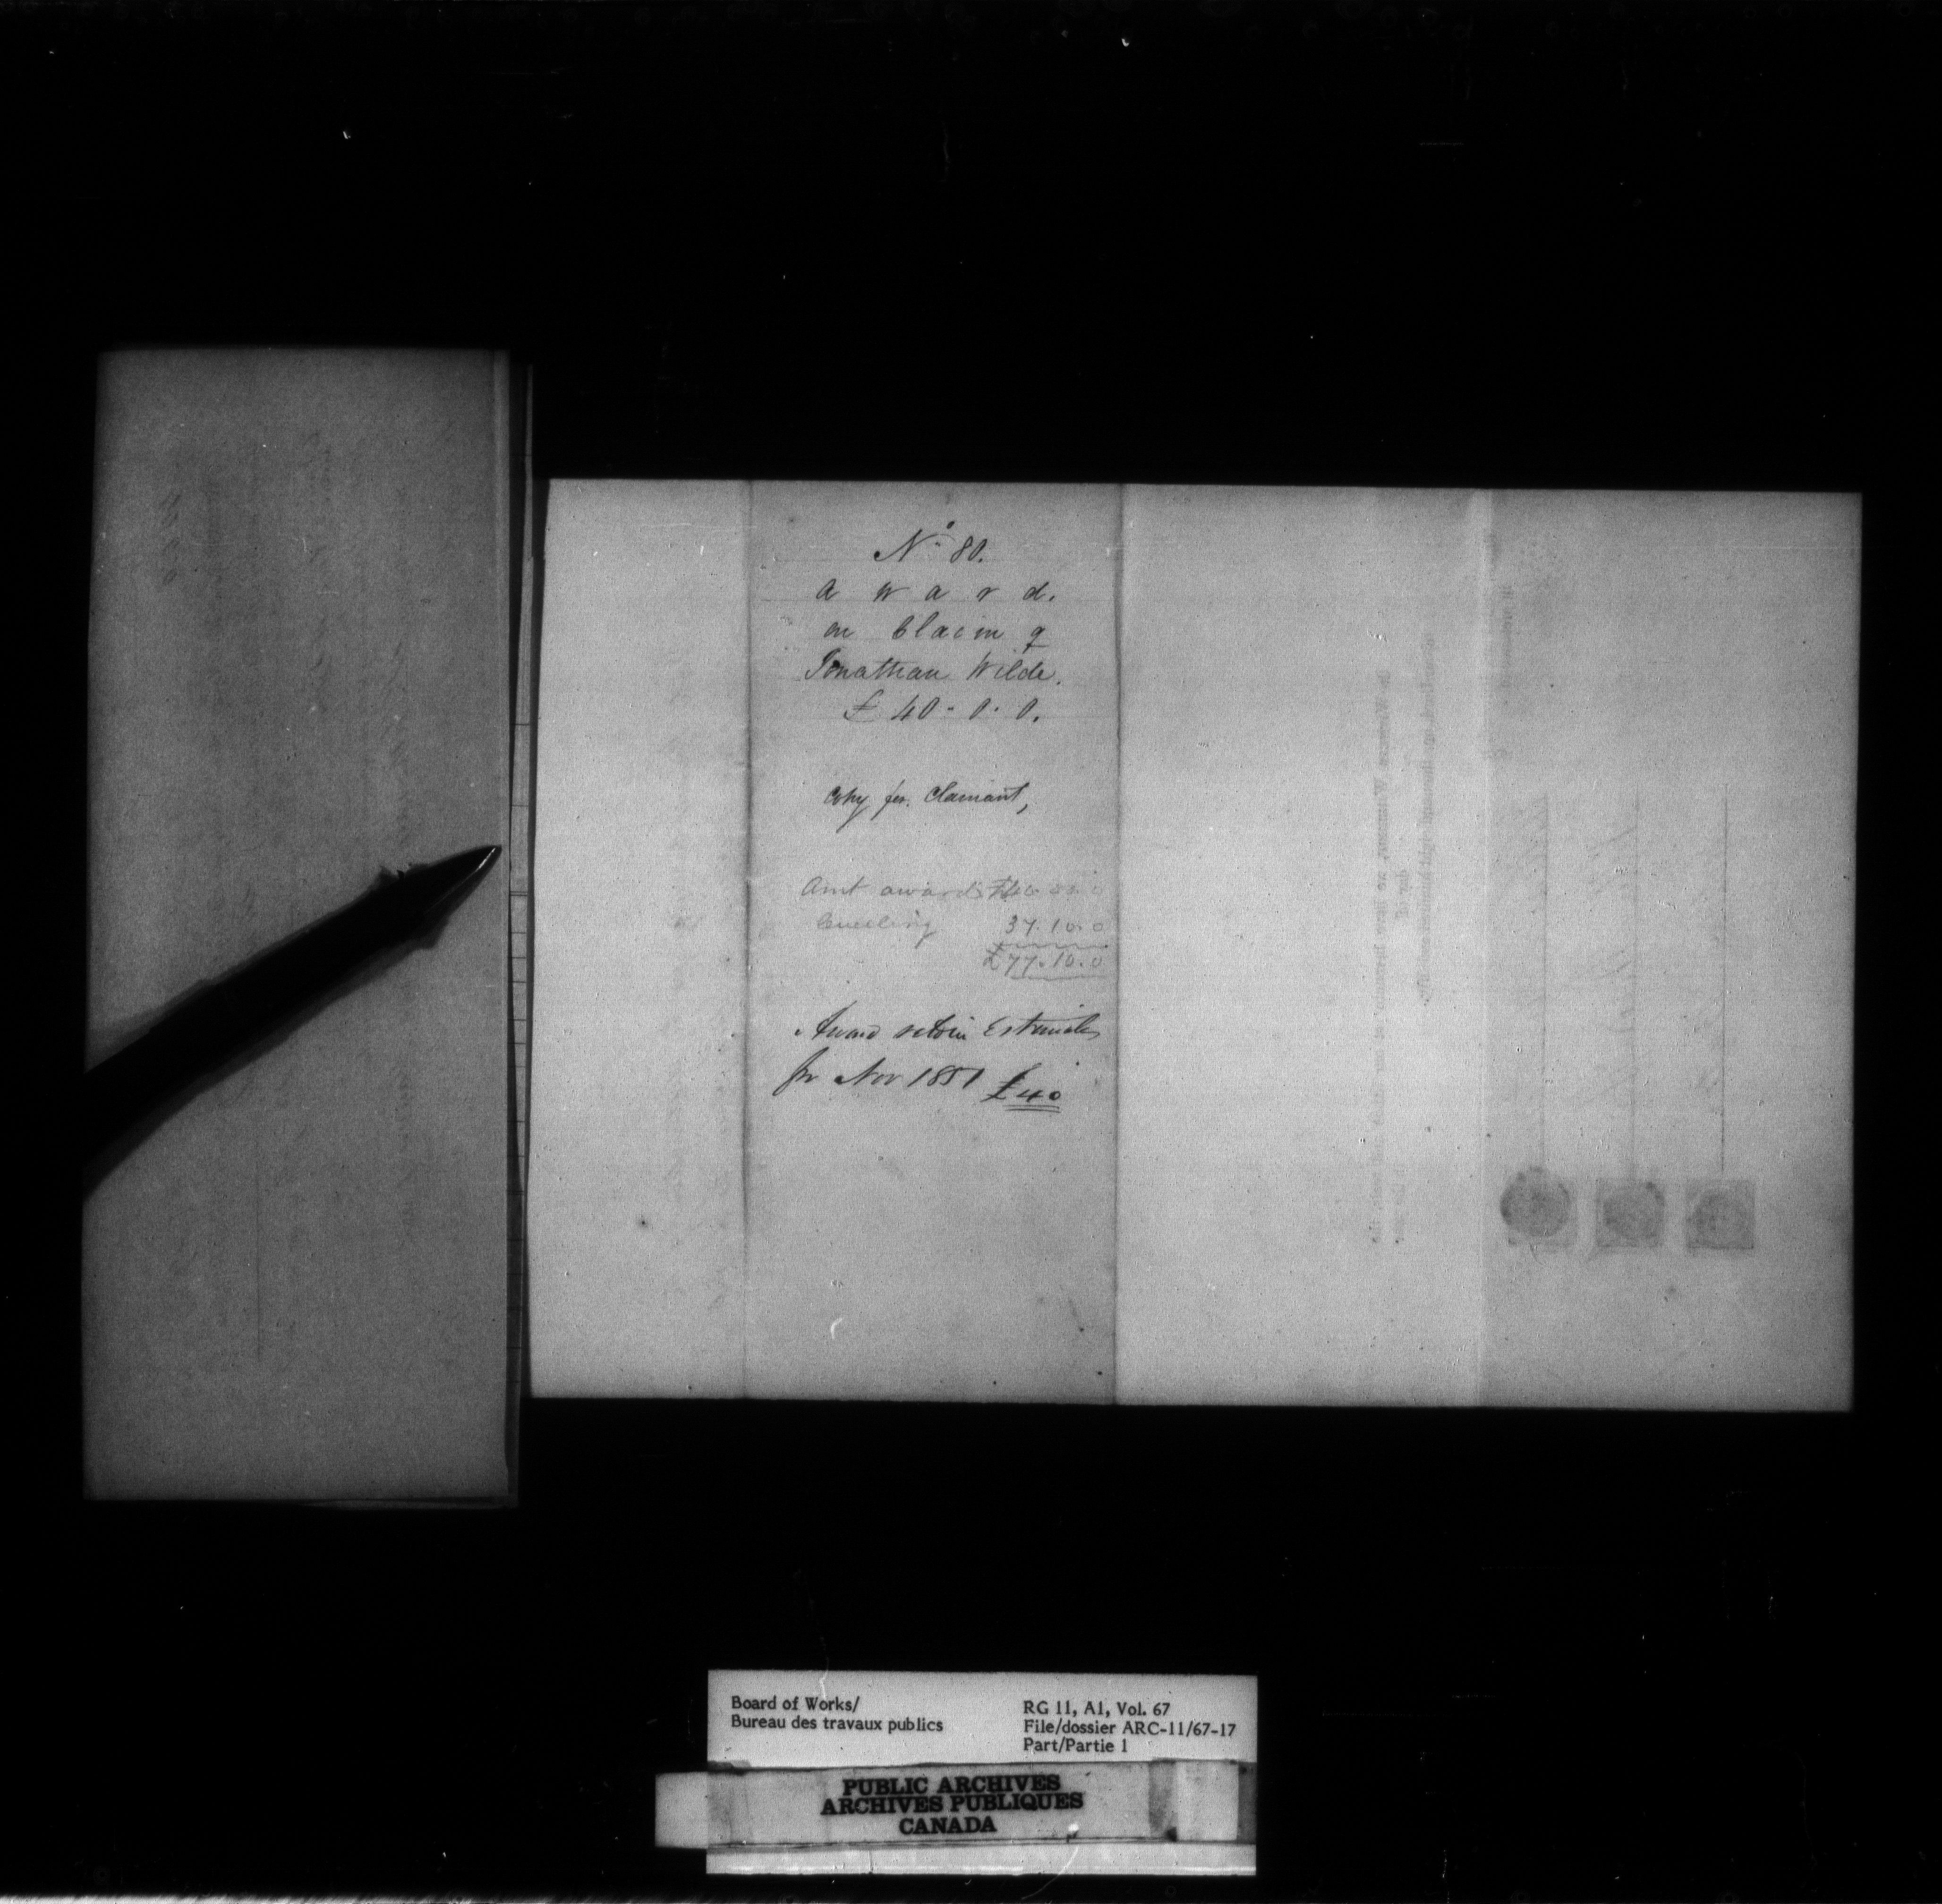 No 80.
a w a r d.
on Claim of
Jonathan Wilde.
£ 40 - 0 - 0.
Copy for Claimant,
Amt awarded £40.0.0
37.10.0
£77.10.0
Award Estimate
for Nov 1851 £40
Board of Works/
Bureau des travaux publics
RG 11, A1, Vol. 67
File/dossier ARC-11/67-17
Part/Partie 1
PUBLIC ARCHIVES
ARCHIVES PUBLIQUES
CANADA